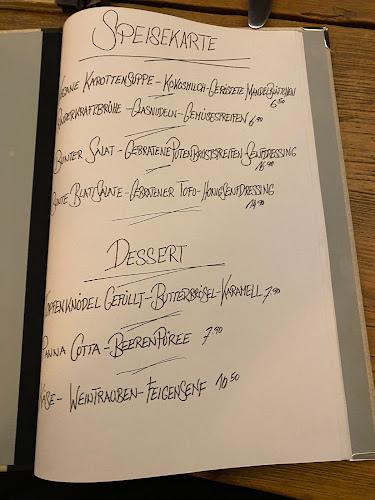 SPEISEKARTE
VEGANE KAROTTENSUPPE - KOKOSMILCH - GERÖSTETE MANDELBLÄTTCHEN
6,50
RINDERKRAFTBRÜHE - GLASNUDELN - GEMÜSESTREIFEN 6,90
BUNTER SALAT - GEBRATENE PUTENBRUSTSTREIFEN - SENFDRESSING
BUNTE BLATTSALATE - GEBRATENER TOFU - HONIGSENFDRESSING
14,90
DESSERT
TOPFENKNÖDEL GEFÜLLT - BUTTERBRÖSEL - KARAMELL 7,90
PANNA COTTA - BEERENPÜREE 7,90
KÄSE - WEINTRAUBEN - FEIGENSENF 10,50